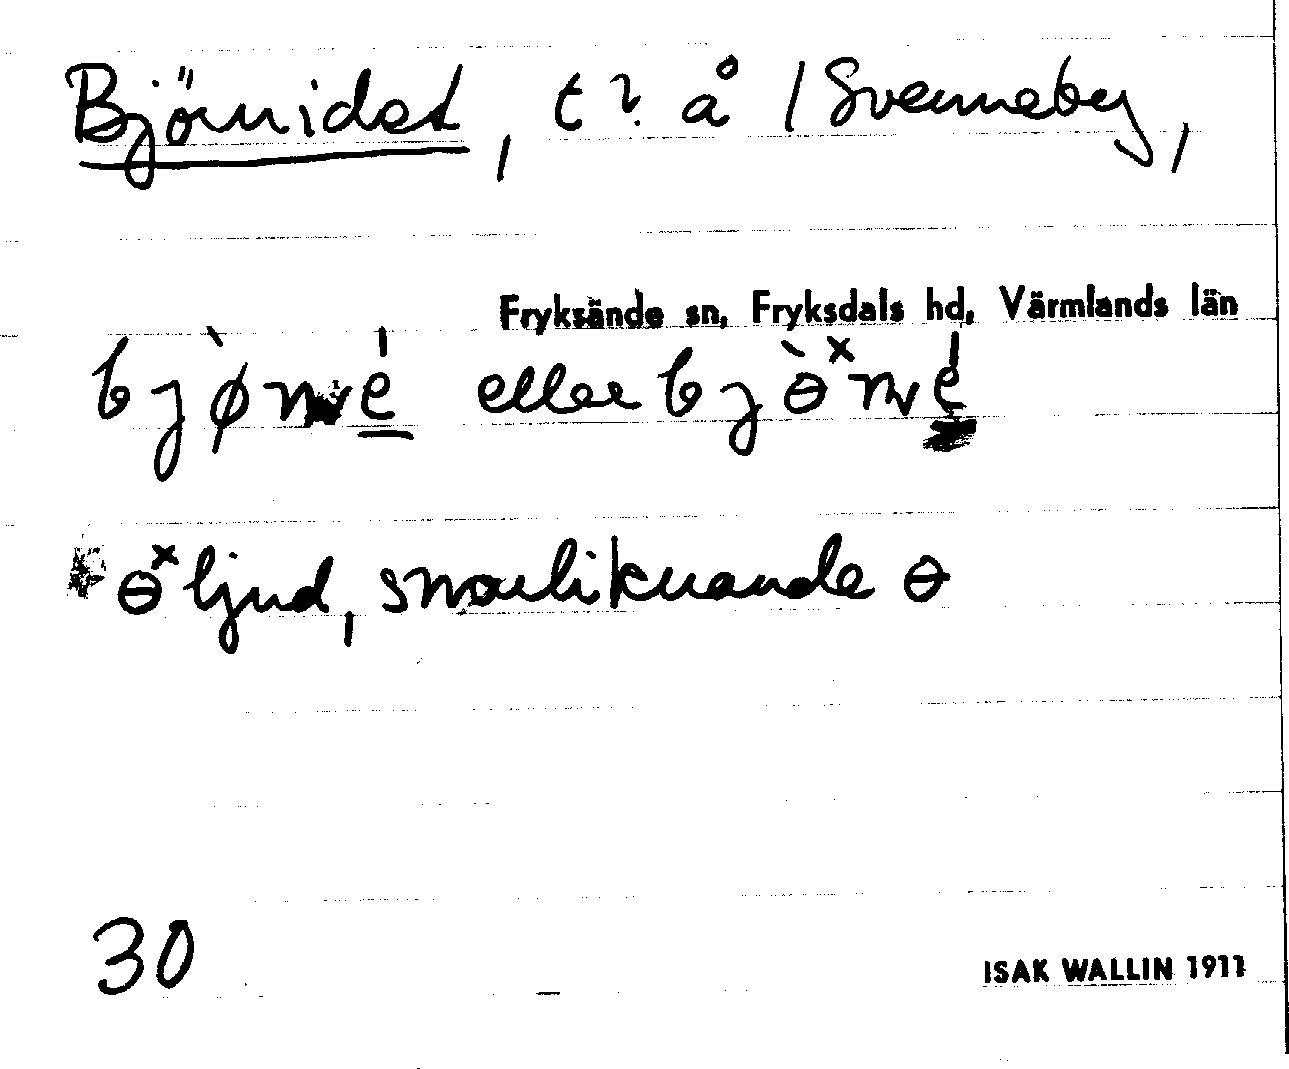 Björnidet, t? å /Svenneby,
Fryksände sn, Fryksdals hd, Värmlands län
eller
ljud, snarliknande ɵ
30
ISAK WALLIN 1911